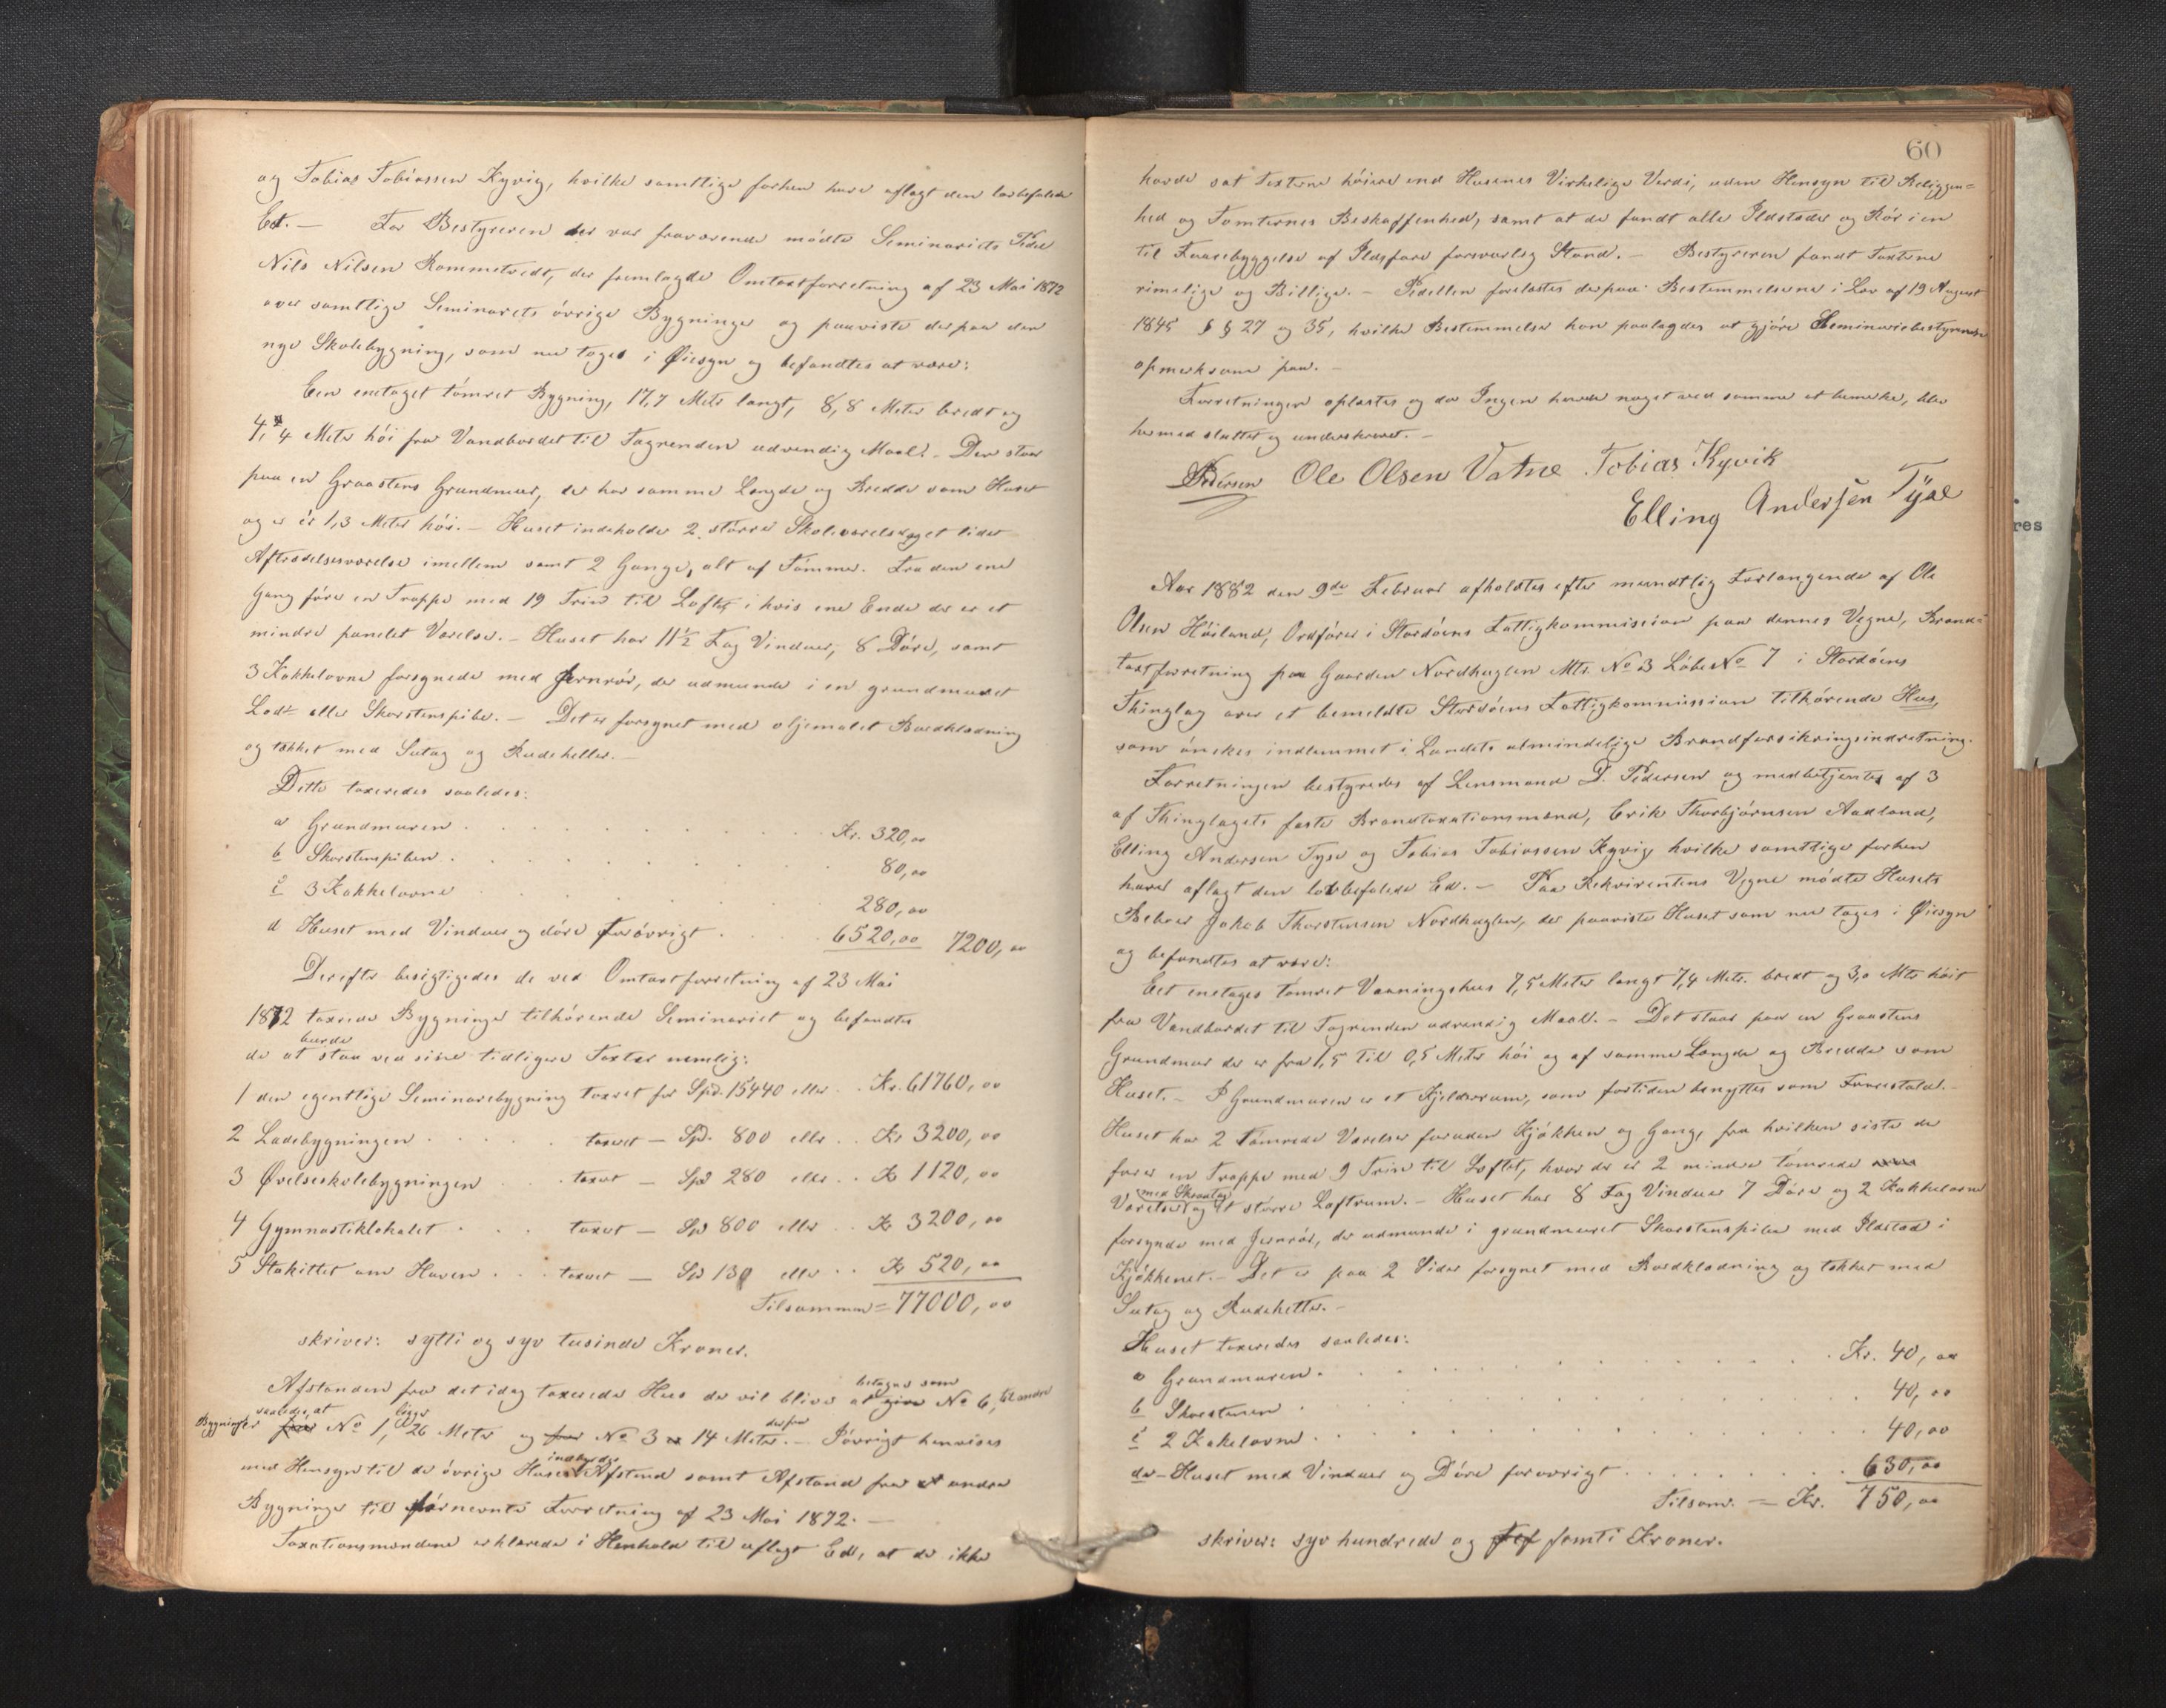 og Tobias Tobiassen Kyvig, hvilke samtlige forhen have aflagt den lovbefalede
Ed. – For Bestyreren der var fraværende mødte Seminariets Pedel
Nils Nilsen Rommetvedt, der fremlagde Omtaxtforretning af 23 Mai 1872
over samtlige Seminarets øvrige Bygninger og paaviste derpaa den
nye Skolebygning, som nu toges i Øiesyn og befandtes at være:
Een enetaget tømret Bygning, 17,7 Meter langt, 8,8 Meter bredt og
4,4 Meter høi fra Vandbordet til Tagrenden udvendig Maal. – Den staar
paa en Graastens Grundmur, der har samme Længde og Bredde som Huset
og er 1,3 Meter høi. – Huset indeholder 2 større Skoleværelser og et lidet
Aftrædelsesværelse imellem samt 2 Gange, alt af Tømmer. Fra den ene
Gang fører en Trappe med 19 Trin til Loftet, i hvis ene Ende der er et
mindre panelet Værelse. – Huset har 11½ Fag Vinduer, 8 Døre, samt
3 Kakkelovne forsynede med Jernrør, der udmunde i en grundmuret
Lod- eller Skorstenspibe. – Det er forsynet med oljemalet Bordklædning
og tækket med Sutag og Rudeheller. –
Dette taxeredes saaledes:
a Grundmuren . . . Kr. 320,00
b Skorstenspiben . . . 80,00
c 3 Kakkelovne . . . 280,00
d Huset med Vinduer og døre forøvrigt . . . 6520,00 7200,00
Derefter besigtigedes de ved Omtaxtforretning af 23 Mai
1872 taxerede Bygninger tilhørende Seminariet og befandtes
burde
de at staa ved sine tidligere Taxter nemlig:
1 den egentlige Seminariebygning taxeret for Spd. 15440 eller . . Kr. 61760,00
2 Ladebygningen . . . taxeret – Spd. 800 eller . . Kr 3200,00
3 Øvelseskolebygningen . . . taxeret – Spd 280 eller . . Kr 1120,00
4 Gymnastiklokalet . . . taxeret – Spd 800 eller . . Kr 3200,00
5 Stakittet om Haven . . . taxeret – Spd 130 eller . . Kr 520,00
Tilsammen = 77000,00
skriver: sytti og syv tusinde Kroner.
betegnes som
Afstanden fra det idag taxerede Hus der vil blive at give No 6, til andre
saaledes, at ligger derfra
Bygninger fra No 1, 26 Meter og fra No 3 er 14 Meter. – Iøvrigt henvises
indbyrdes
med Hensyn til de øvrige Huses Afstand samt Afstand fra andre
Bygninger til førnevnte Forretning af 23 Mai 1872. –
Taxationsmændene erklærede i Henhold til aflagt Ed, at de ikke
60
havde sat Taxterne høiere end Husenes Virkelige Verdi, uden Hensyn til Beliggen-
hed og Tomternes Beskaffenhed, samt at de fandt alle Ildsteder og Rør i en
til Forebyggelse af Ildsfare forsvarlig Stand. – Bestyreren fandt Taxterne
rimelige og Billige. – Pedellen forelæstes derpaa Bestemmelserne i Lov af 19 August
1845 § § 27 og 35, hvilke Bestemmelser han paalagdes at gjøre Seminariebestyreren
opmerksom paa. –
Forretningen oplæstes og da Ingen havde noget ved samme at bemerke, blev
hermed sluttet og underskrevet. –
Pedersen Ole Olsen Vatne Tobias Kyvik
Elling Andersen Tyse
Aar 1882 den 9de Februar afholdtes efter mundtlig Forlangende af Ole
Olsen Høiland, Ordfører i Stordøens Fattigkommission paa dennes Vegne, Brand-
taxtforretning paa Gaarden Nordhuglen Mtr. No 3 Løbe No 7 i Stordøens
Thinglag over et bemeldte Stordøens Fattigkommission tilhørende Hus,
som ønskes indlemmet i Landets almindelige Brandforsikringsindretning.
Forretningen bestyredes af Lensmand D. Pedersen og medbetjentes af 3
af Thinglagets faste Brandtaxationsmænd, Erik Thorbjørnsen Aadland,
Elling Andersen Tyse og Tobias Tobiassen Kyvig hvilke samtlige forhen
haver aflagt den lovbefalede Ed. – Paa Rekvirentens Vegne mødte Husets
Beboer Jakob Thorstensen Nordhuglen, der paaviste Huset som nu toges i Øiesyn
og befandtes at være:
Eet enetages tømret Vaaningshus 7,5 Meter langt 7,4 Mtr. bredt og 3,0 Mtr høit
fra Vandbordet til Tagrenden udvendig Maal. – Det staar paa en Graastens
Grundmur der er fra 1,5 til 0,5 Meter høi og af samme Længde og Bredde som
Huset. – I Grundmuren er et Kjelderrum, som fortiden benyttes som Faarestald. –
Huset har 2 tømrede Værelser foruden Kjøkken og Gang, fra hvilken sidste der
fører en Trappe med 9 Trin til Loftet, hvor der er 2 mindre tømrede
med Skraatag
Værelser og et større Loftrum. – Huset har 8 Fag Vinduer 7 Døre og 2 Kakkelovne
forsynede med Jernrør, der udmunde i grundmuret Skorstenspibe med Ildsted i
Kjøkkenet. – Det er paa 2 Sider forsynet med Bordklædning og tækket med
Sutag og Rudeheller. –
Huset taxeredes saaledes:
a Grundmuren . . . Kr. 40,00
b Skorstenen . . . 40,00
c 2 Kakelovne . . . 40,00
d – Huset med Vinduer og Døre forøvrigt . . . 630,00
Tilsam. = Kr. 750,00
skriver: syv hundrede og femti Kroner.
res